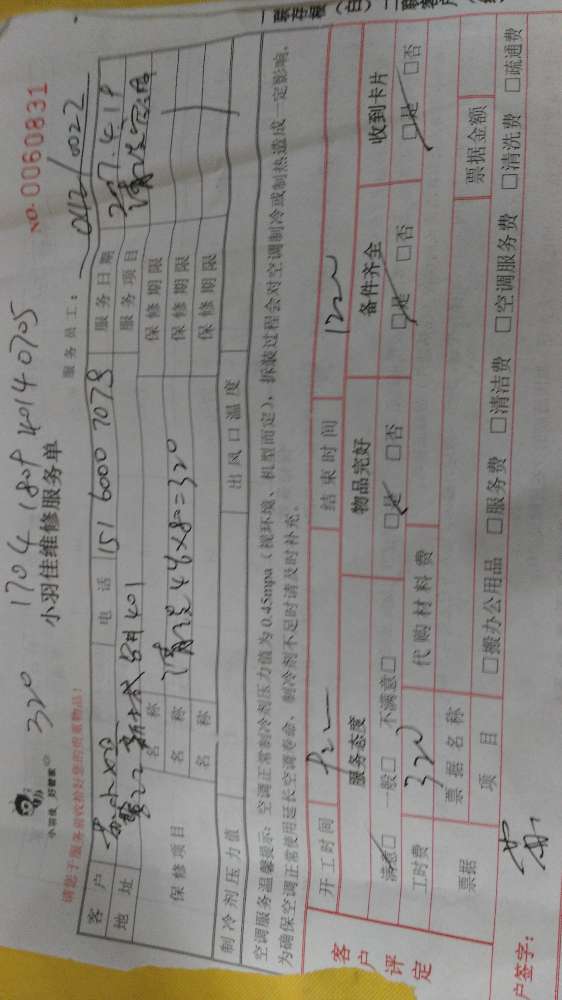 一联存根（白）二联客户（红
NO.0060831
320 1704 1809 40140705
小羽佳 好管家
小羽佳维修服务单
请您于服务前收拾好您的贵重物品！
服务员工：0112/0022
客户 电话 151 6000 7078 服务日期 2017.4.18
地址 401 服务项目
保修项目 名称 保修期限
名称 清洗4台×80=320 保修期限
名称 保修期限
制冷剂压力值 出风口温度
空调服务温馨提示：空调正常制冷剂压力值为0.45mpa（视环境、机型而定），拆装过程会对空调制冷或制热造成一定影响，
为确保空调正常使用延长空调寿命，制冷剂不足时请及时补充。
客户评定
开工时间 结束时间
服务态度 物品完好 备件齐全 收到卡片
满意□ 一般□ 不满意□ □是 □否 □是 □否 □是 □否
工时费 320 代购材料费
票据 票据名称 票据金额
项目 □搬办公用品 □服务费 □清洁费 □空调服务费 □清洗费 □疏通费
户签字：